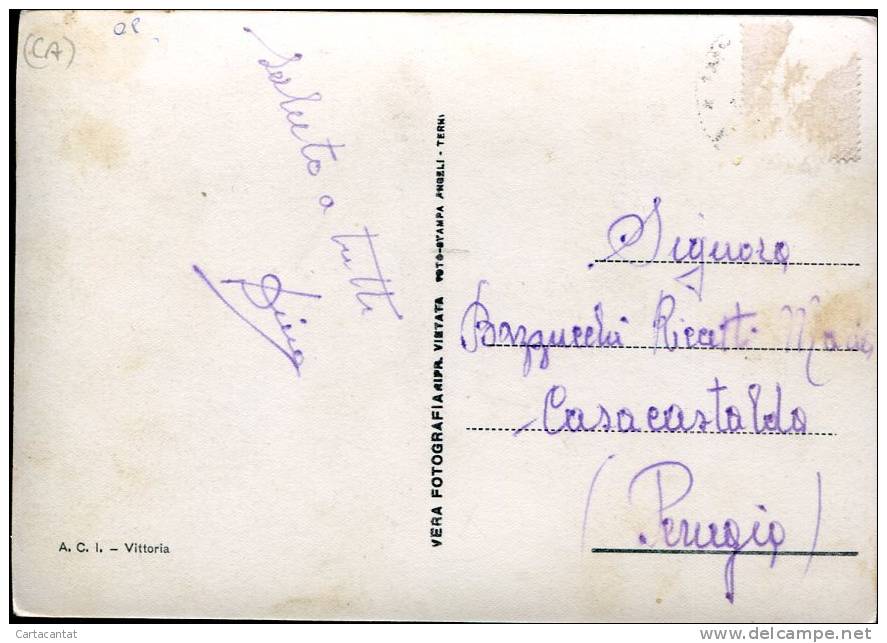 (CA)
Saluto a tutti
A. C. I. – Vittoria
VERA FOTOGRAFIA RIPR. VIETATA FOTO-STAMPA ANGELI - TERNI
Signora
Bazzucchi Ricatti Maria
Casacastalda
(Perugia)
Cartacantat
delcampe.net